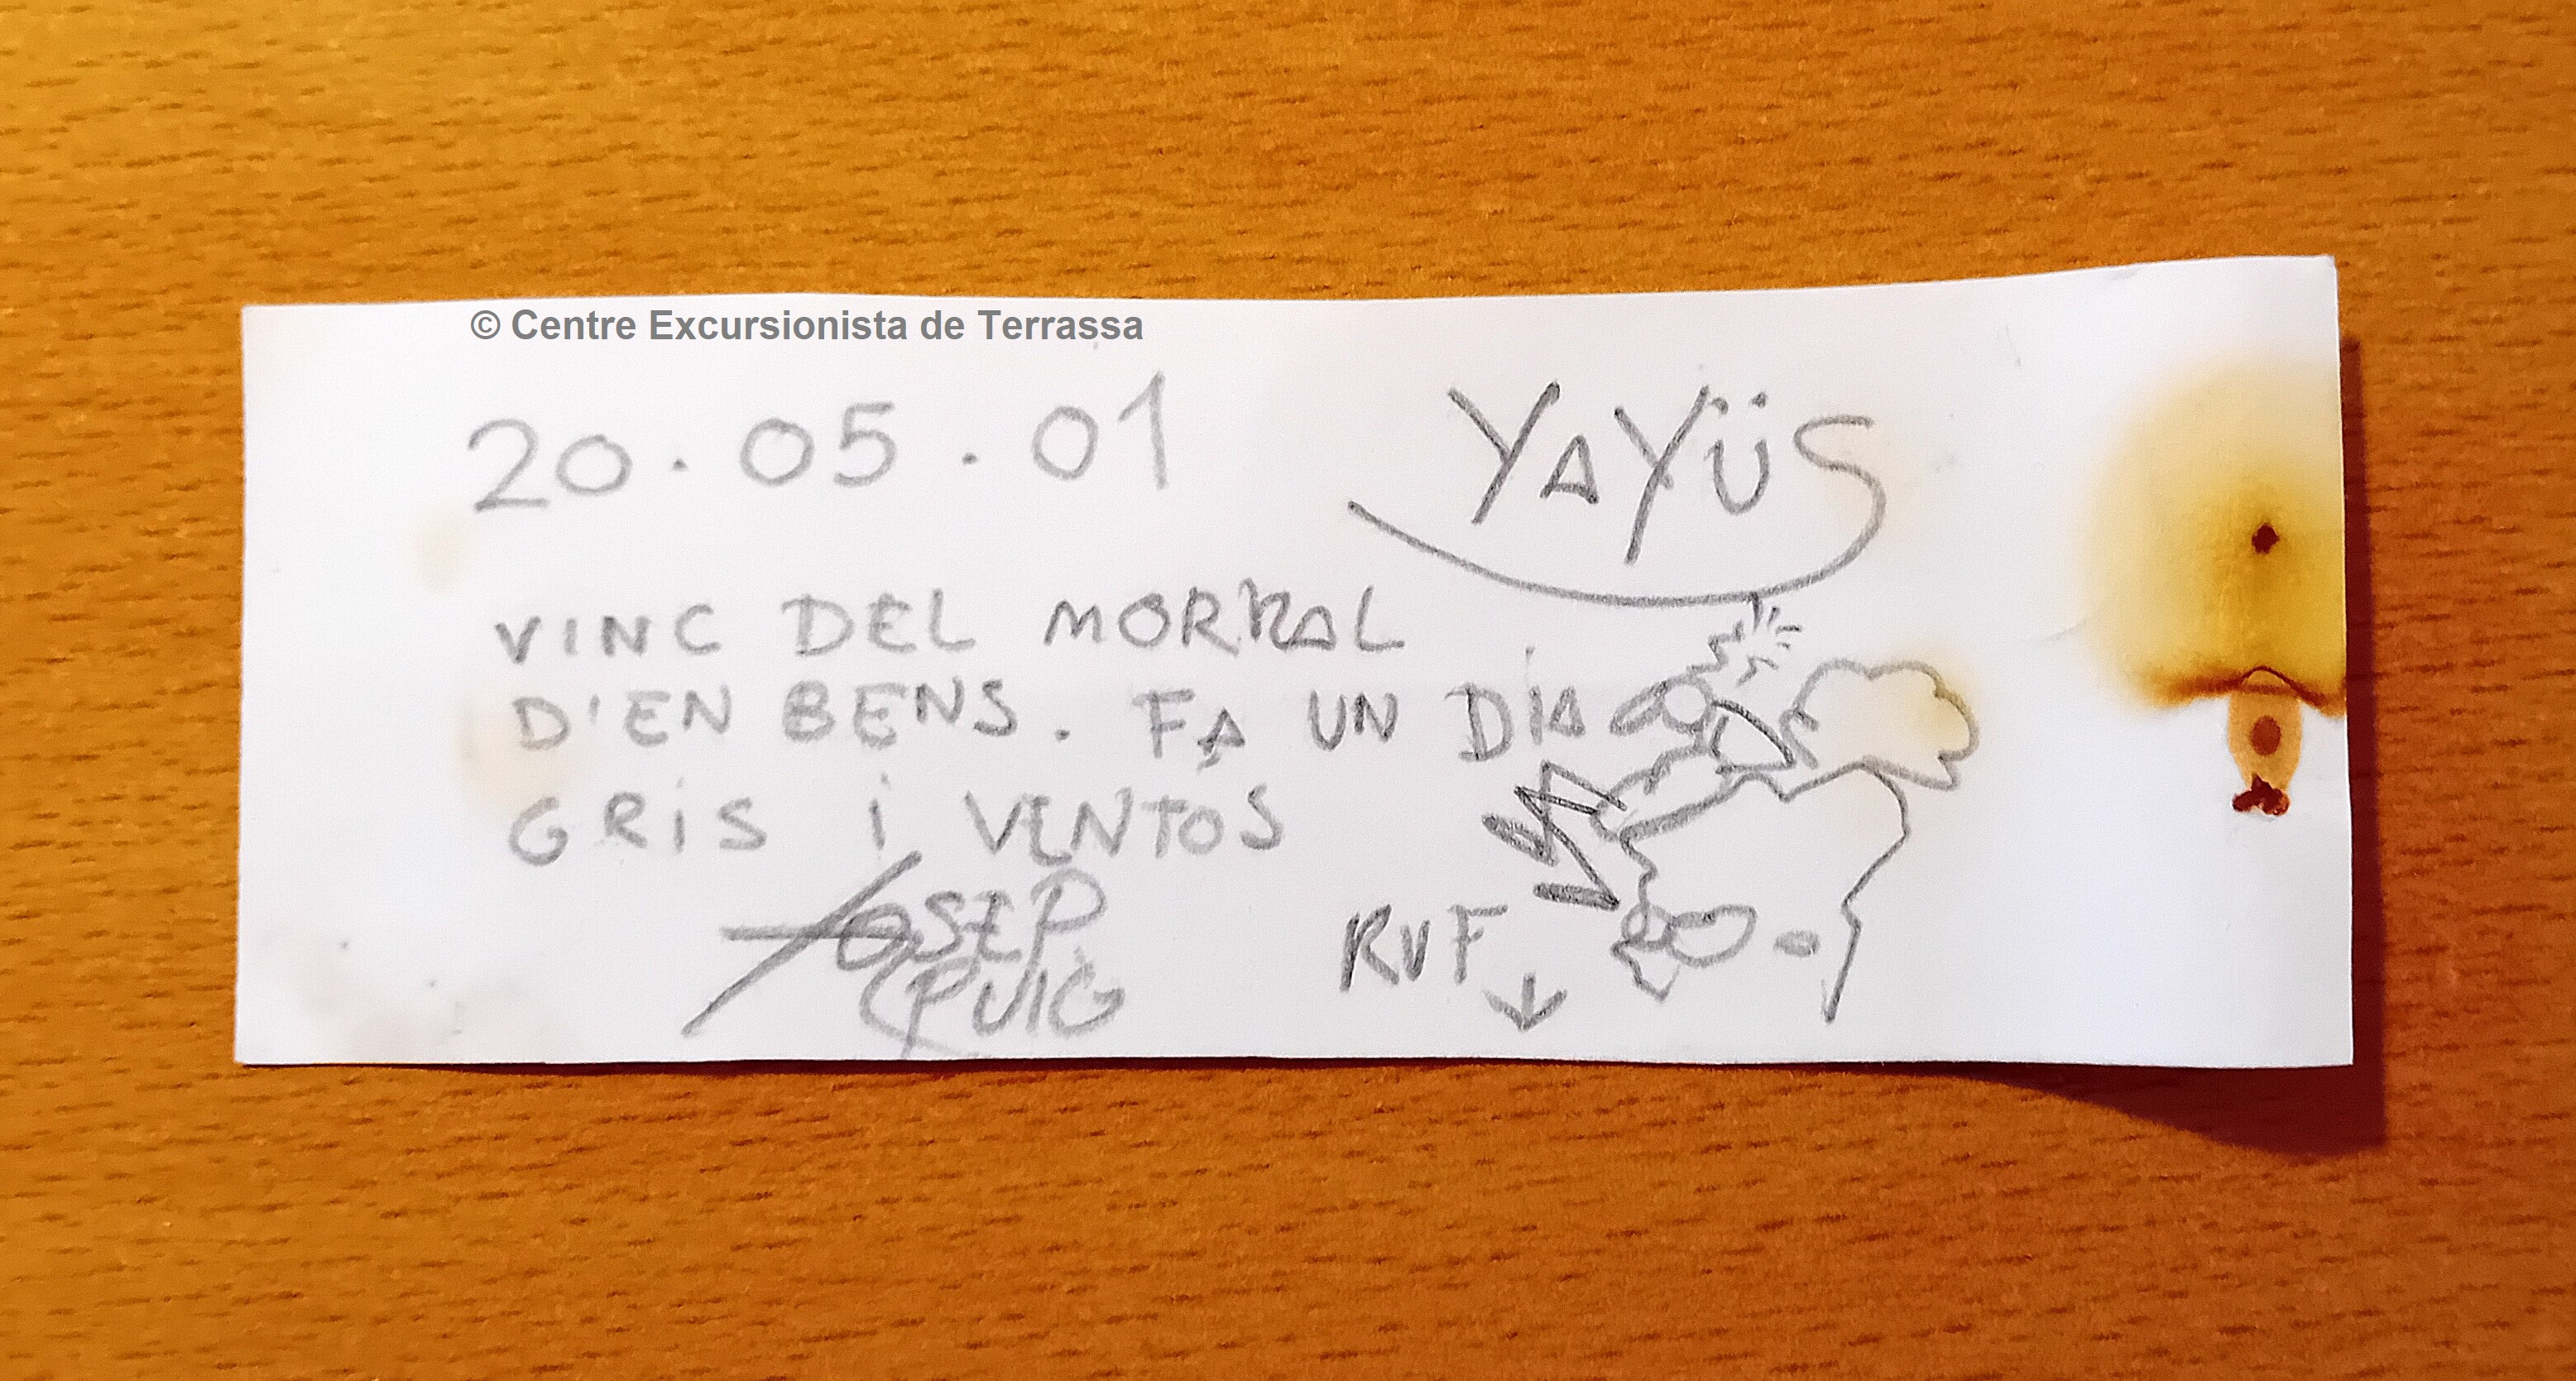 © Centre Excursionista de Terrassa
20.05.01
YAYÜS
VINC DEL MORRAL
D'EN BENS. FA UN DIA
GRiS i VENTOS
JOSEP
PUIG
RUF